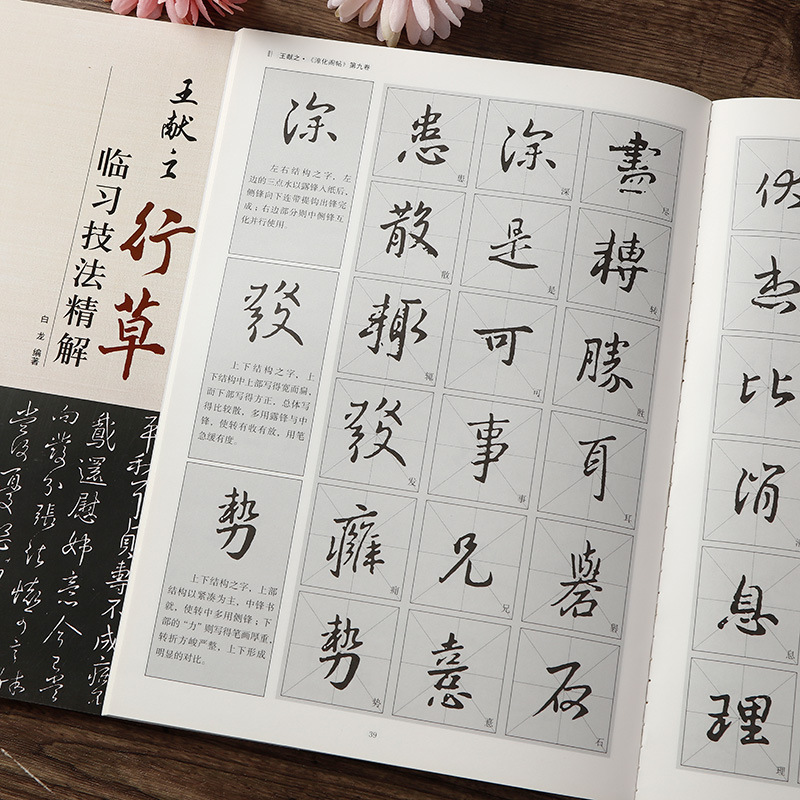 王献之
行草
临习技法精解
白龙 编著
王献之·《淳化阁帖》第九卷
深
左右结构之字,左
边的三点水以露锋入纸后,
侧锋向下连带提钩出锋完
成;右边部分则中侧锋互
化并行使用。
發
上下结构之字,上
下结构中上部写得宽而扁,
而下部写得方正,总体写
得比较散,多用露锋与中
锋,使转有收有放,用笔
急缓有度。
勢
上下结构之字,上部
结构以紧凑为主,中锋书
就,使转中多用侧锋;下
部的“力”则写得笔画厚重,
转折方峻严整,上下形成
明显的对比。
患 深 盡
深 尽
散 是 轉
散 是 转
輒 可 勝
辄 可
發 事 耳
发 事 耳
癰 兄 礜
痈 兄
勢 意 石
势 意 石
39
比
消
息
息
理
理